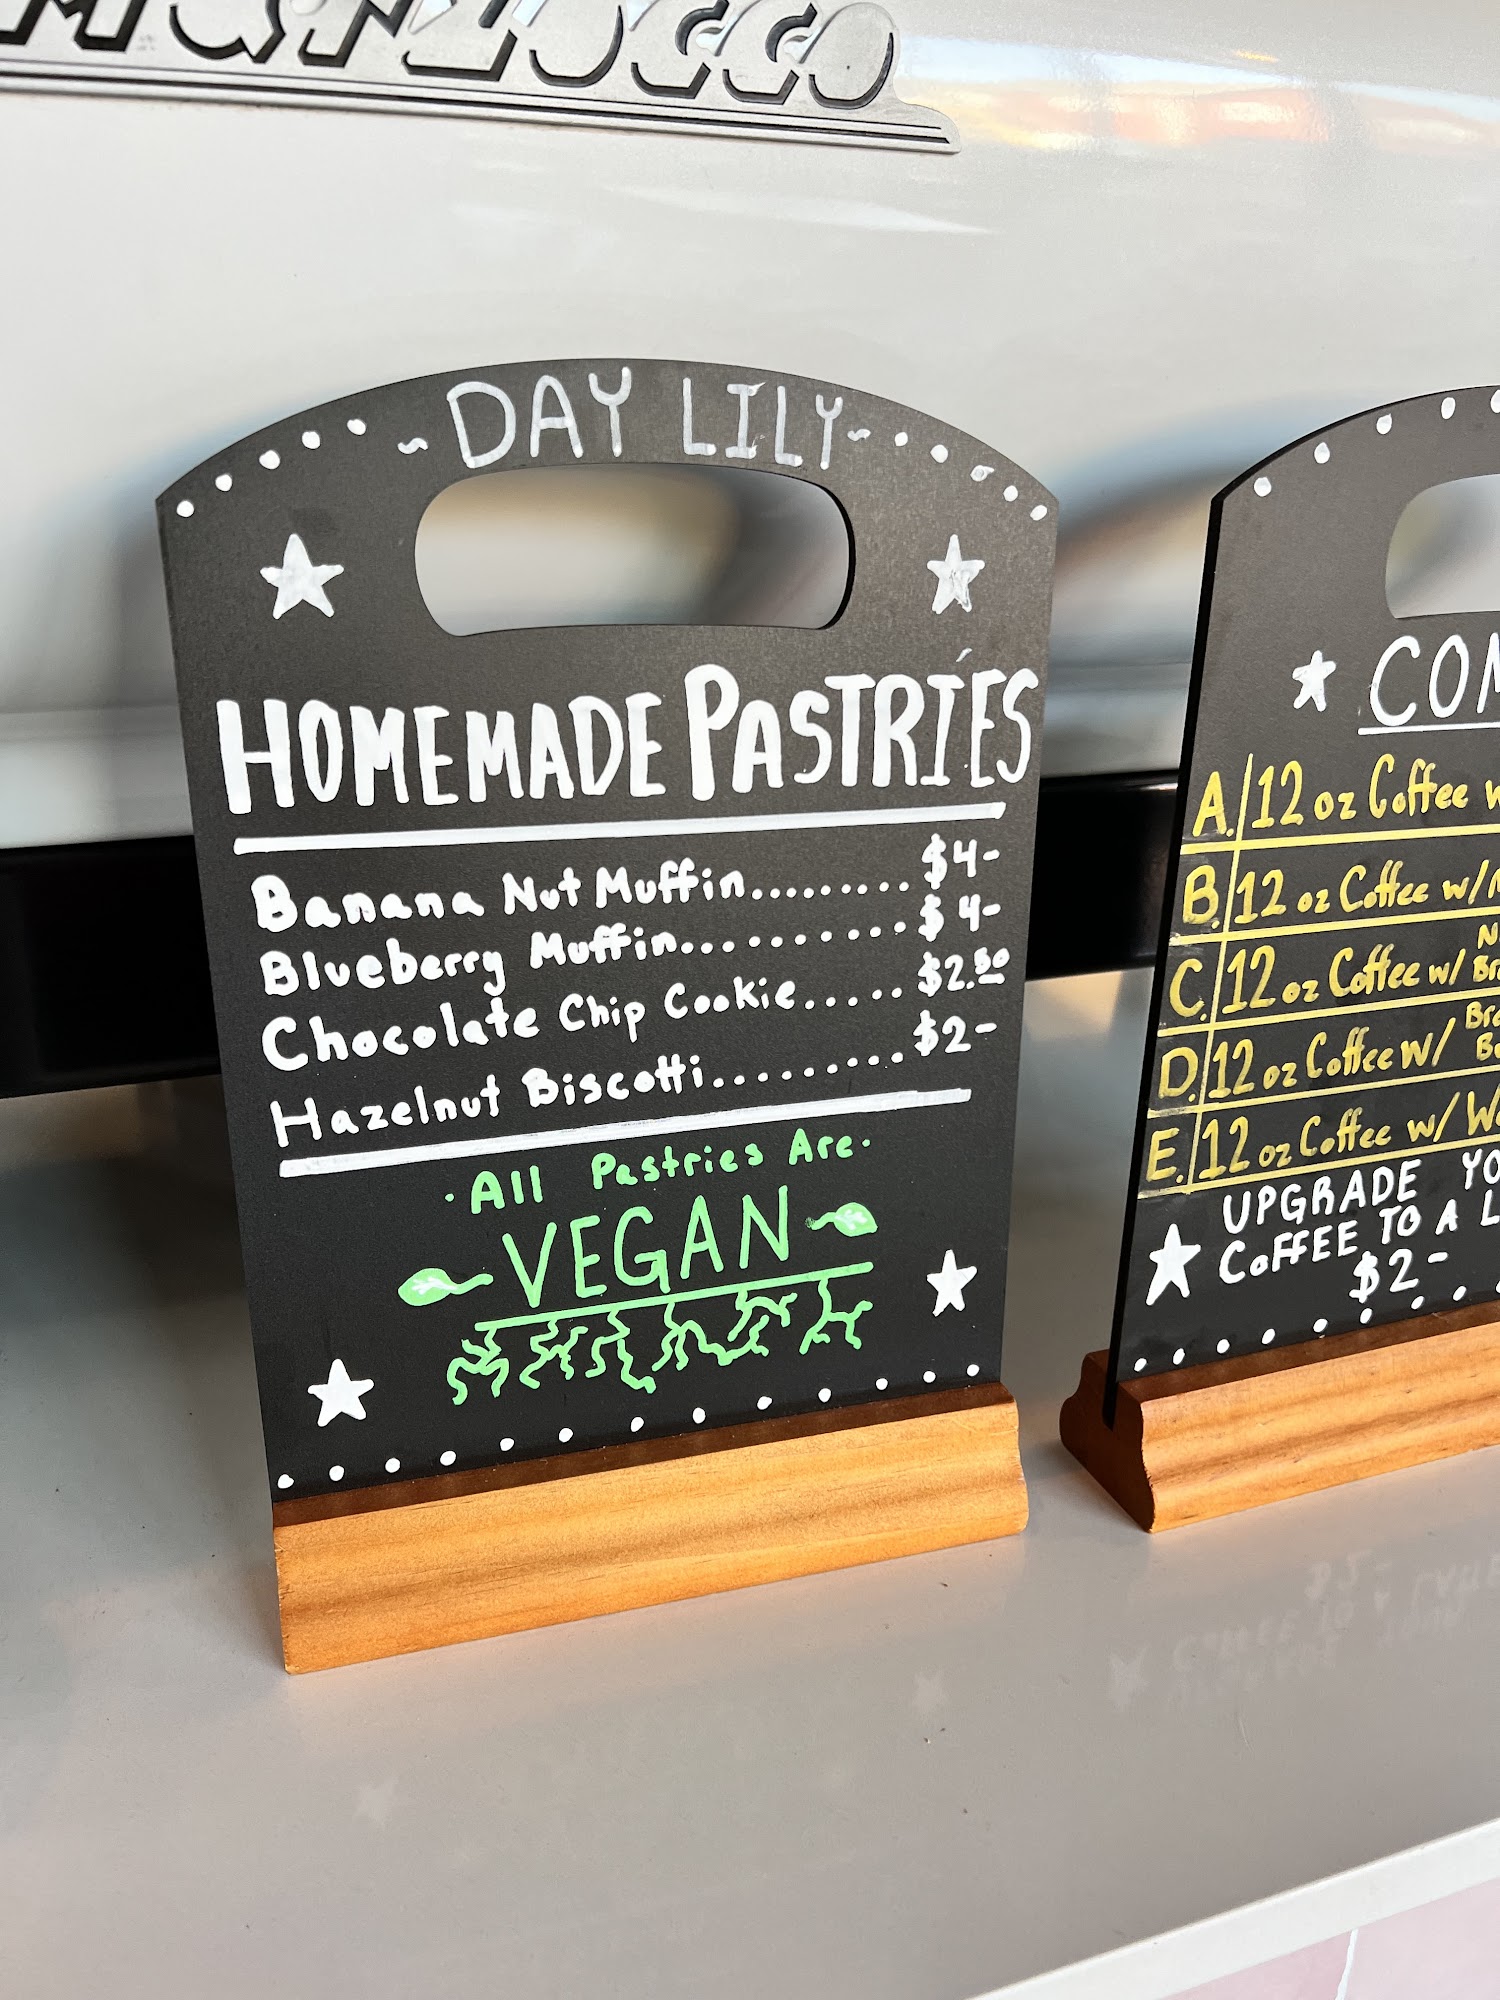 ~DAY LILY~
HOMEMADE PASTRIES
Banana Nut Muffin......... $4-
Blueberry Muffin.......... $4-
Chocolate Chip Cookie..... $2.50
Hazelnut Biscotti......... $2-
·All Pastries Are·
VEGAN
A. 12 oz Coffee
B. 12 oz Coffee w/
C. 12 oz Coffee w/
D. 12 oz Coffee w/
E. 12 oz Coffee w/
UPGRADE
COFFEE TO A
$2-